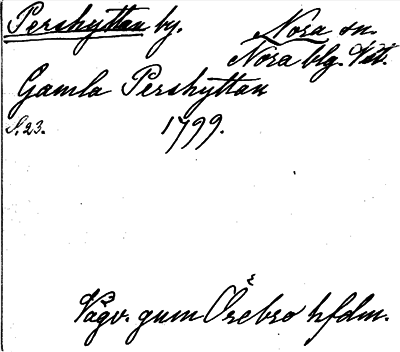 Pershyttan by. Nora sn.
Nora blg. Vstl.
Gamla Pershyttan
S. 23. 1799.
Vägv. genom Örebro hfdm.